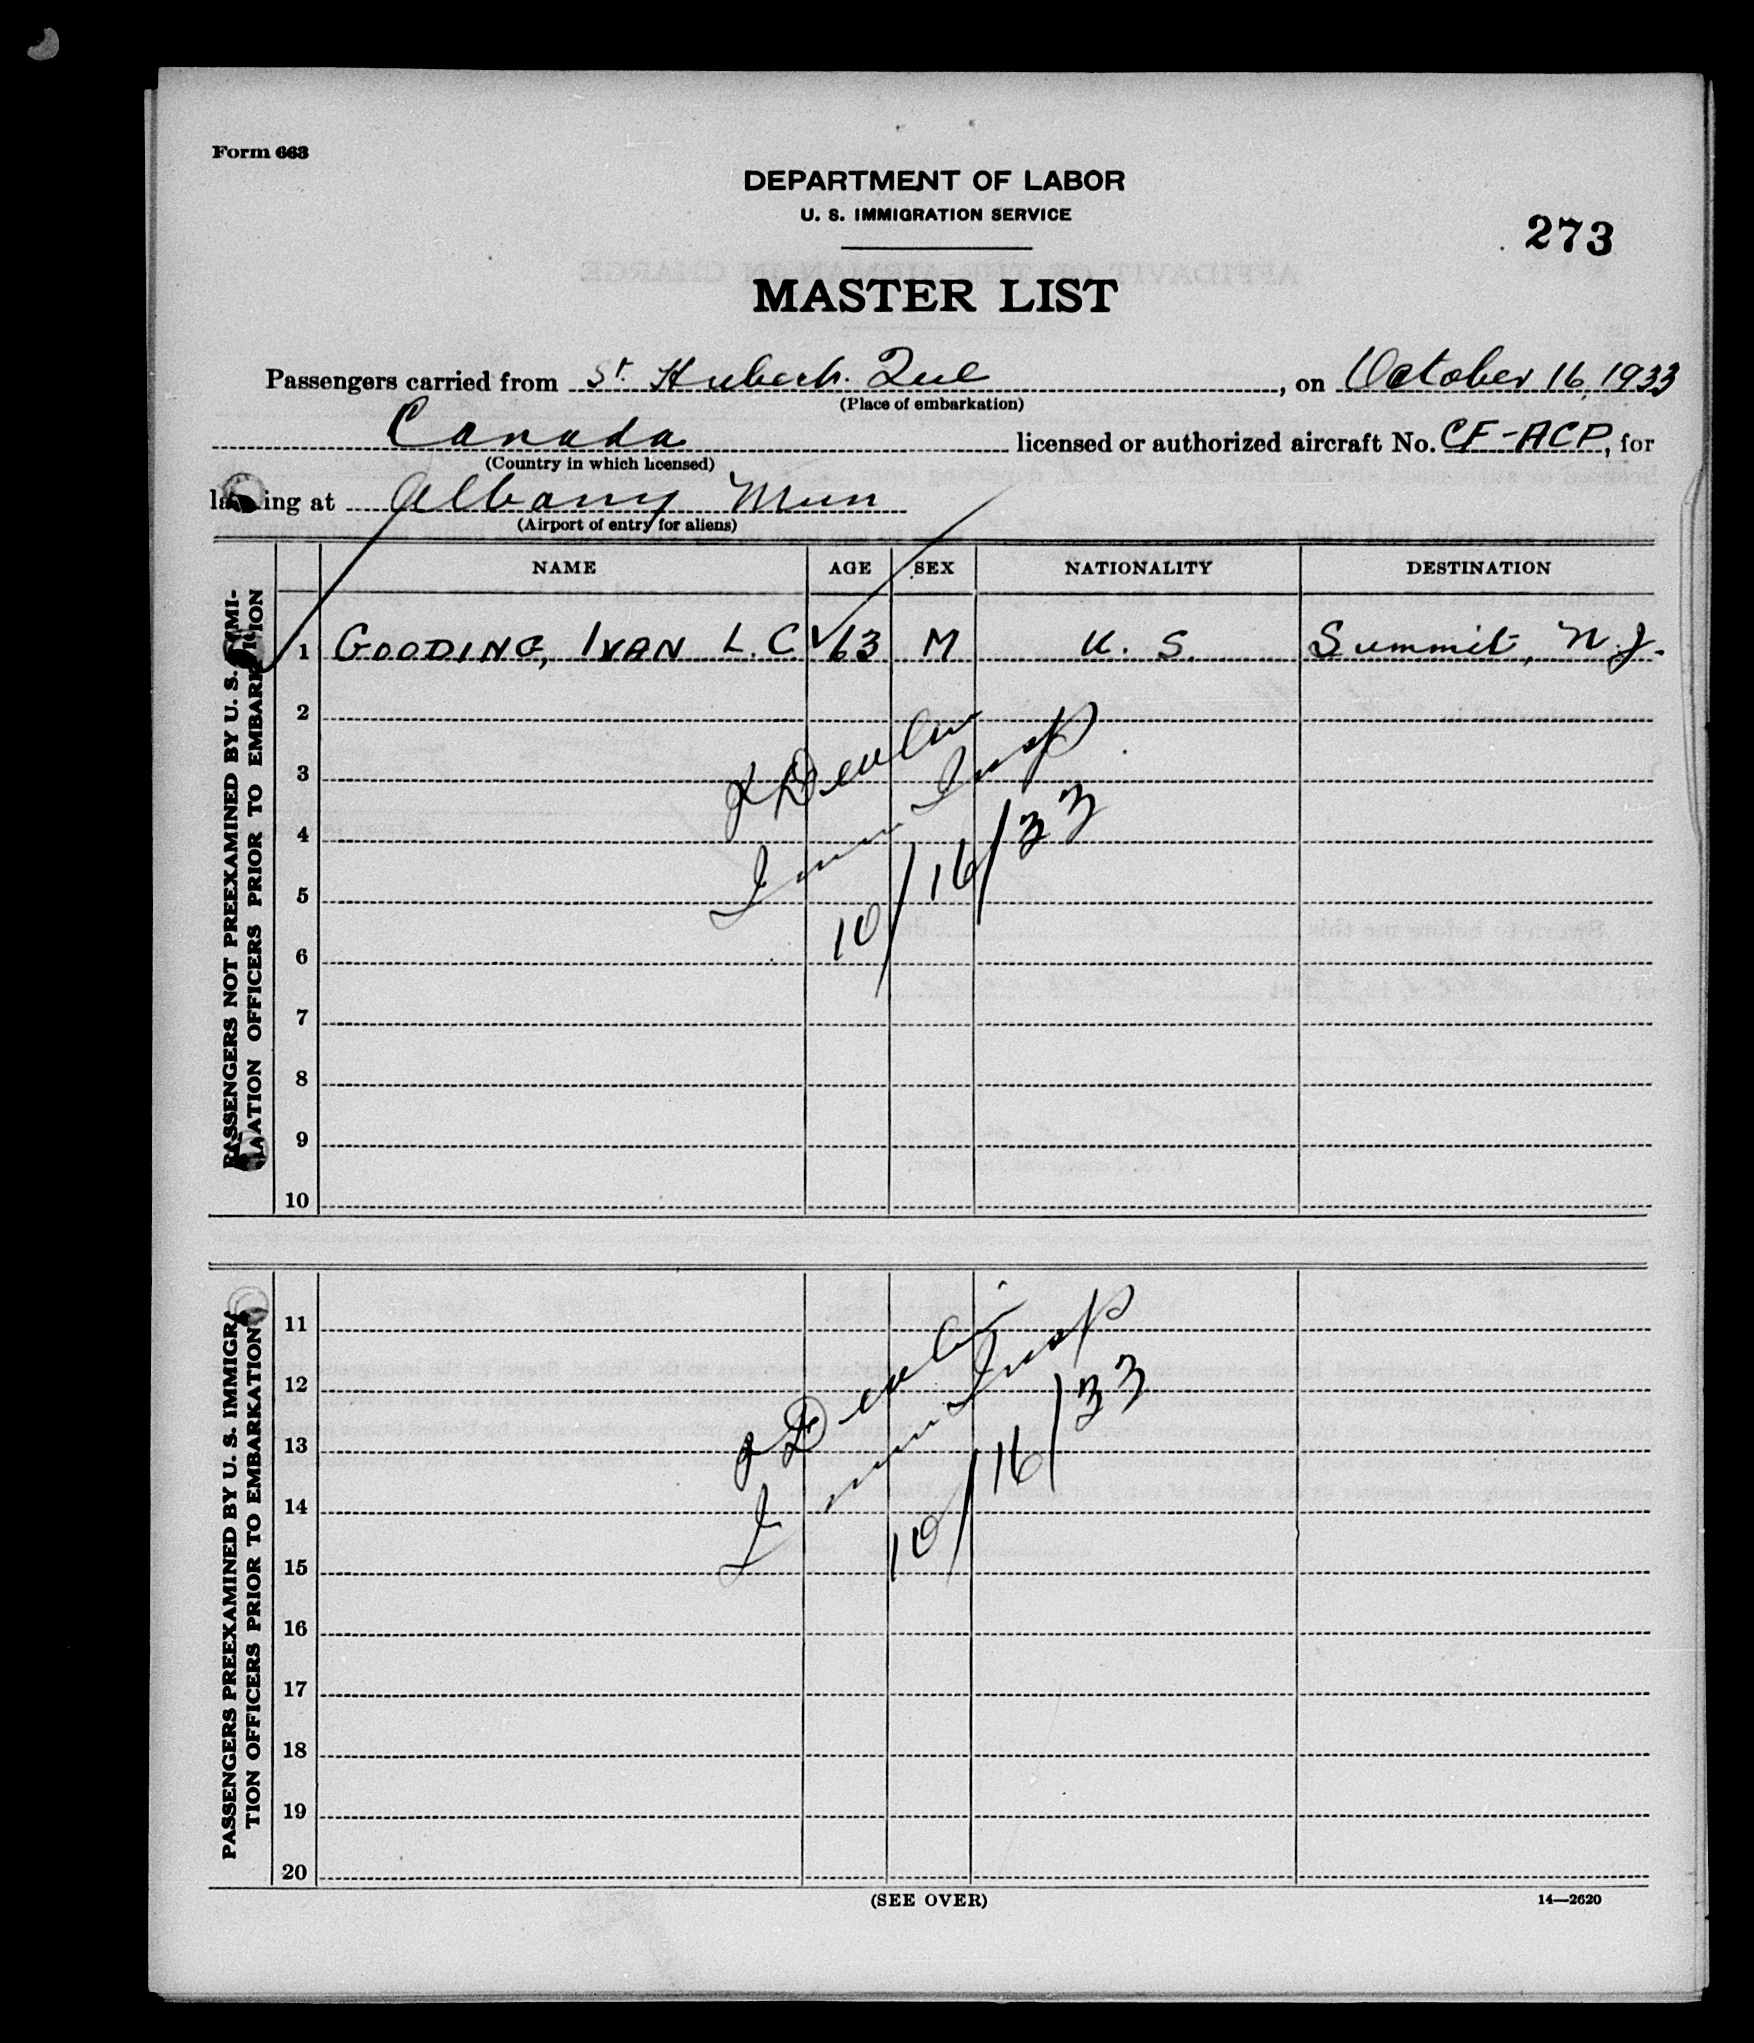 Form 663
DEPARTMENT OF LABOR
U. S. IMMIGRATION SERVICE
273
MASTER LIST
Passengers carried from St. Hubert. Que, on October 16, 1933
(Place of embarkation)
Canada licensed or authorized aircraft No. CF-ACP, for
(Country in which licensed)
landing at Albany Mun
(Airport of entry for aliens)
NAME AGE SEX NATIONALITY DESTINATION
PASSENGERS NOT PREEXAMINED BY U. S. IMMI-
GRATION OFFICERS PRIOR TO EMBARKATION
1 GOODING, IVAN L. C. 63 M U. S. Summit, N. J.
2
3
4
5
6
7
8
9
10
J Devlin
Imm Insp
10/16/33
PASSENGERS PREEXAMINED BY U. S. IMMIGRA-
TION OFFICERS PRIOR TO EMBARKATION
11
12
13
14
15
16
17
18
19
20
J Devlin
Imm Insp
10/16/33
(SEE OVER)
14—2620